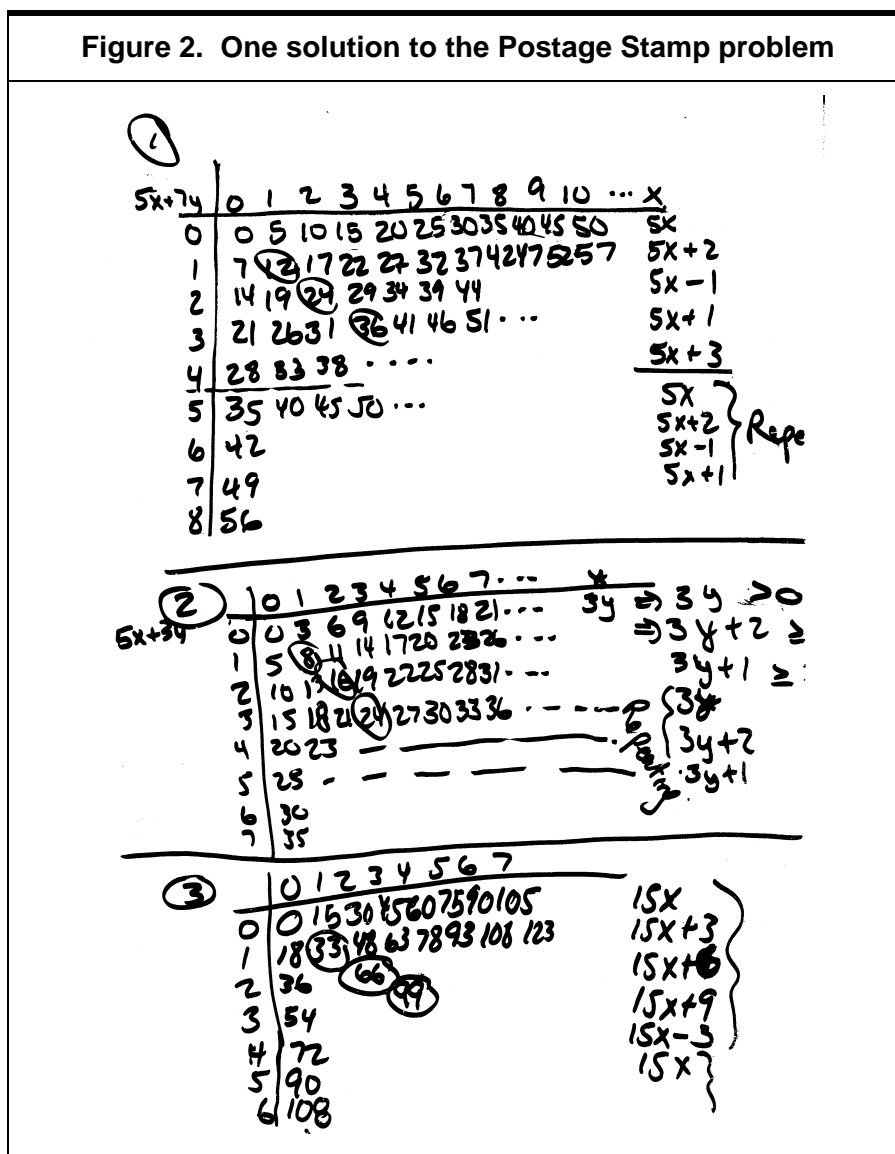 Figure 2. One solution to the Postage Stamp problem
1
5x+7y 0 1 2 3 4 5 6 7 8 9 10 ... x
0 0 5 10 15 20 25 30 35 40 45 50 5x
1 7 12 17 22 27 32 37 42 47 52 57 5x+2
2 14 19 24 29 34 39 44 5x-1
3 21 26 31 36 41 46 51 ... 5x+1
4 28 33 38 .... 5x+3
5 35 40 45 50 ... 5x
6 42 5x+2
7 49 5x-1
8 56 5x+1
Repe
2
5x+3y 0 1 2 3 4 5 6 7 ...
0 0 3 6 9 12 15 18 21 ... 3y ⇒ 3y >0
1 5 8 11 14 17 20 23 26 ... ⇒ 3y+2 ≥
2 10 13 16 19 22 25 28 31 ... 3y+1 ≥
3 15 18 21 24 27 30 33 36 3y
4 20 23 3y+2
5 25 3y+1
6 30
7 35
3
0 1 2 3 4 5 6 7
0 0 15 30 45 60 75 90 105 15x
1 18 33 48 63 78 93 108 123 15x+3
2 36 66 15x+6
3 54 99 15x+9
4 72 15x-3
5 90 15x
6 108